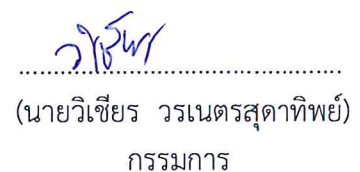 (นายวิเชียร วรเนตรสุดาทิพย์)
กรรมการ